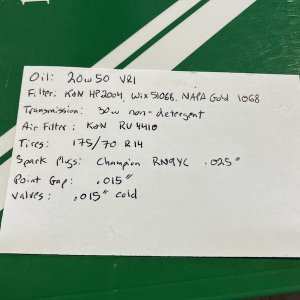 Oil: 20w50 VR1
Filter: K&N HP2004, Wix 51068, NAPA Gold 1068
Transmission: 30w non-detergent
Air Filter: K&N RU 4410
Tires: 175/70 R14
Spark Plugs: Champion RN9YC .025"
Point Gap: .015"
Valves: .015" cold